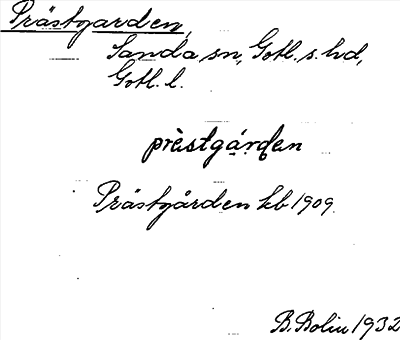 Prästgarden,
Sanda sn, Gotl. s. hd,
Gotl. l.
prèstgá̤rden
Prästgården kb 1909.
B. Bolin 1932